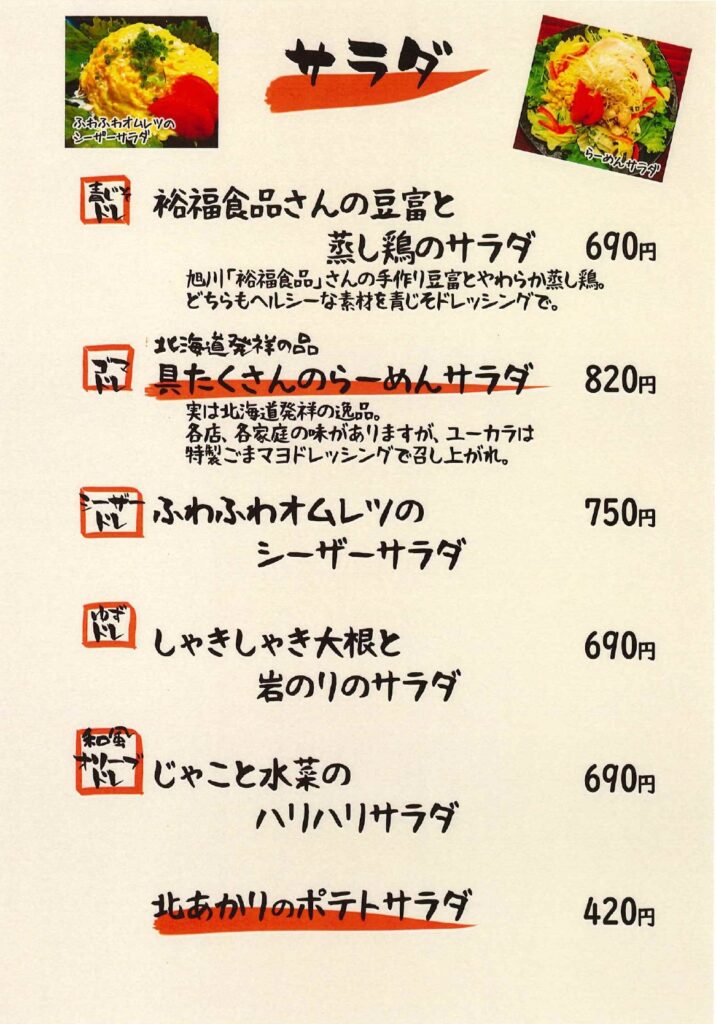 サラダ
ふわふわオムレツの
シーザーサラダ
らーめんサラダ
青じそ
ドレ
裕福食品さんの豆富と
蒸し鶏のサラダ 690円
旭川「裕福食品」さんの手作り豆富とやわらか蒸し鶏。
どちらもヘルシーな素材を青じそドレッシングで。
ゴマ
ドレ
北海道発祥の品
具たくさんのらーめんサラダ 820円
実は北海道発祥の逸品。
各店、各家庭の味がありますが、ユーカラは
特製ごまマヨドレッシングで召し上がれ。
シーザー
ドレ
ふわふわオムレツの 750円
シーザーサラダ
ゆず
ドレ
しゃきしゃき大根と 690円
岩のりのサラダ
和風
オリーブ
ドレ
じゃこと水菜の 690円
ハリハリサラダ
北あかりのポテトサラダ 420円